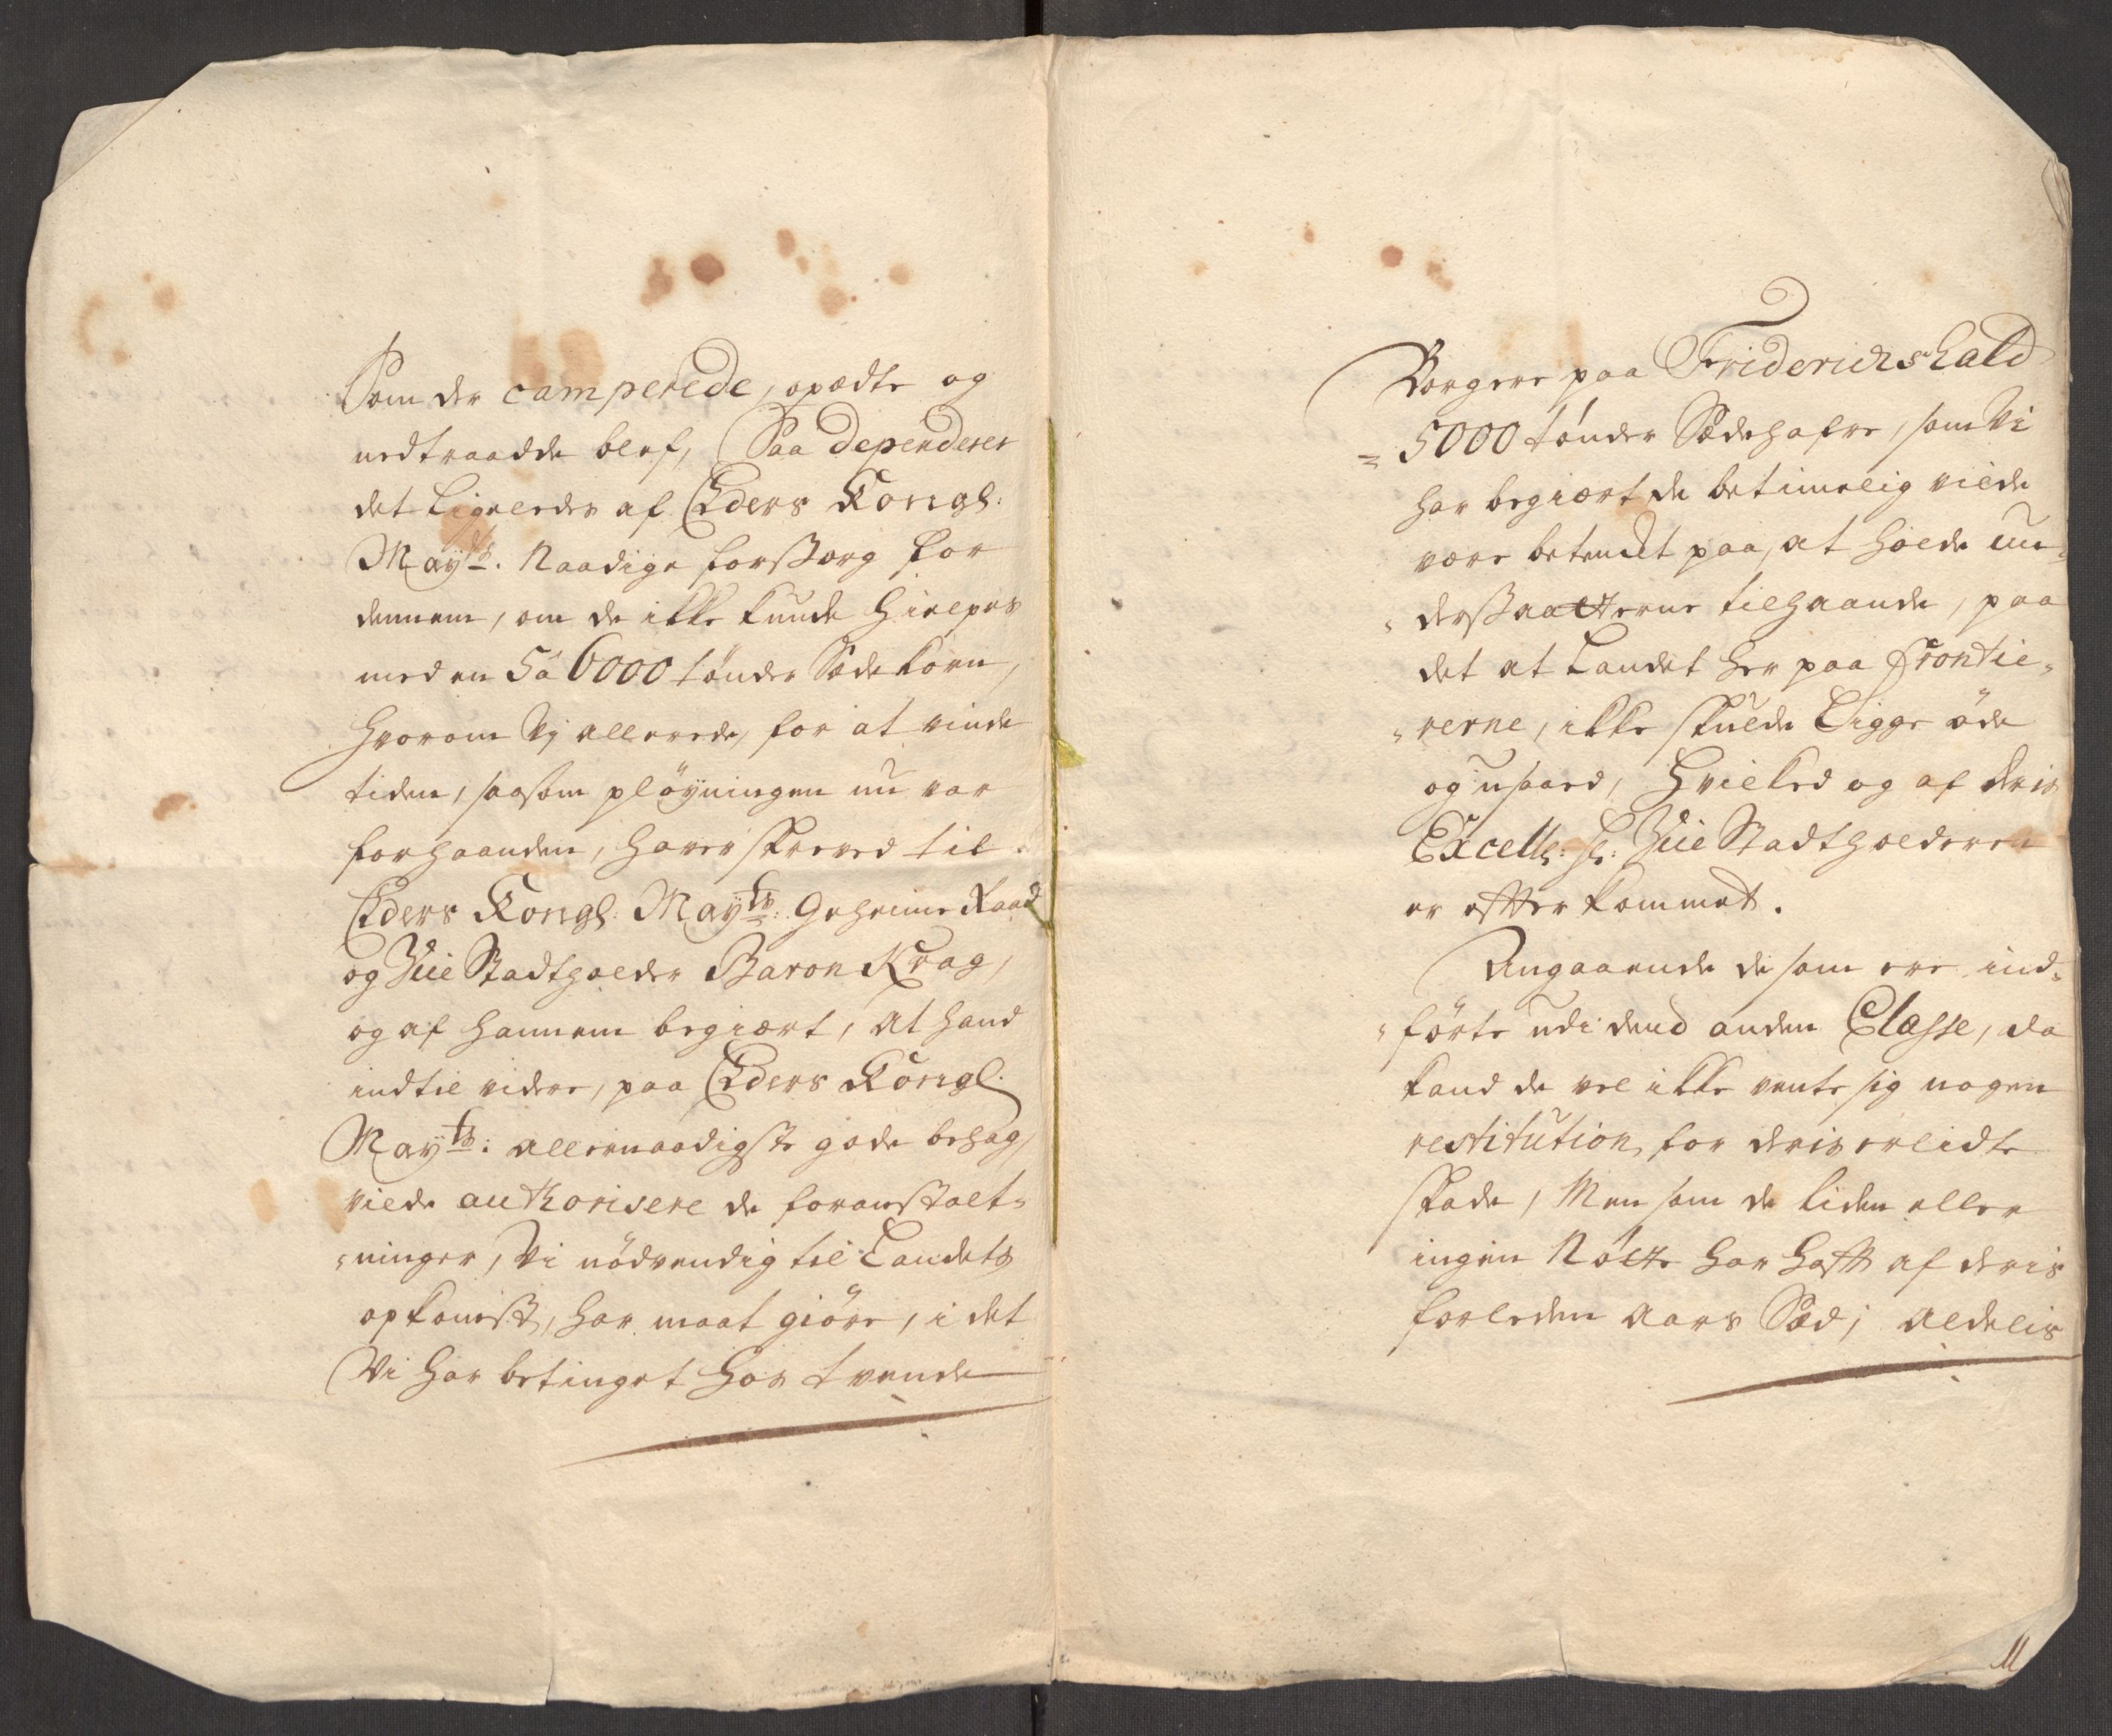 Som der camperede, opædte og
nedtraadde blef, Saa dependerer
det ligeledes af Eders Kongl:
Mayts. Naadige forsorg for
dennem, om de ikke kunde hielpes
med en 5 à 6000 tønder Sædekorn,
hvorom Vj allerede, for at vinde
tiden, saasom pløyningen nu var
forhaanden, haver skreved til
Eders Kongl: Mayts: Geheime Raad
og Vice Stadtholder Baron Krag,
og af hannem begiært, at hand
indtil videre, paa Eders Kongl.
Mayts: allernaadigste gode behag,
vilde authorisere de foranstalt-
-ninger, Vi nødvendig til Landets
opkomst, har maat giøre, i det
Vi har betinget hos tvende
Borgere paa Friderichshald
5000 tønder Sædehafre, som Vi
har begiært de betimelig vilde
være betenckt paa, at holde un-
-dersaatterne tilhaande, paa
det at Landet her paa Frontie-
-rerne, ikke skulde Ligge øde
og usaaed, hvilked og af deris
Excell: Hr: Vice Stadtholderen
er efterkommet.
Angaaende de som ere ind-
-førte udi dend anden Classe, da
kand de vel ikke vente sig nogen
restitution for deris erlidte
skade, Men som de liden eller
ingen Nøtte har hafft af deris
forleden aars Sæd, aldelis